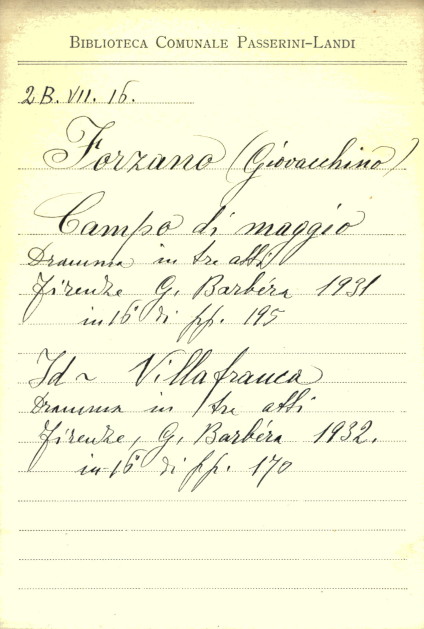 BIBLIOTECA COMUNALE PASSERINI-LANDI
2B. VII. 16.
Forzano (Giovacchino)
Campo di maggio
Dramma in tre atti
Firenze G. Barbéra 1931
in 16° di pp. 195
Id ~ Villafranca
Dramma in tre atti
Firenze, G. Barbéra 1932.
in-16° di pp. 170